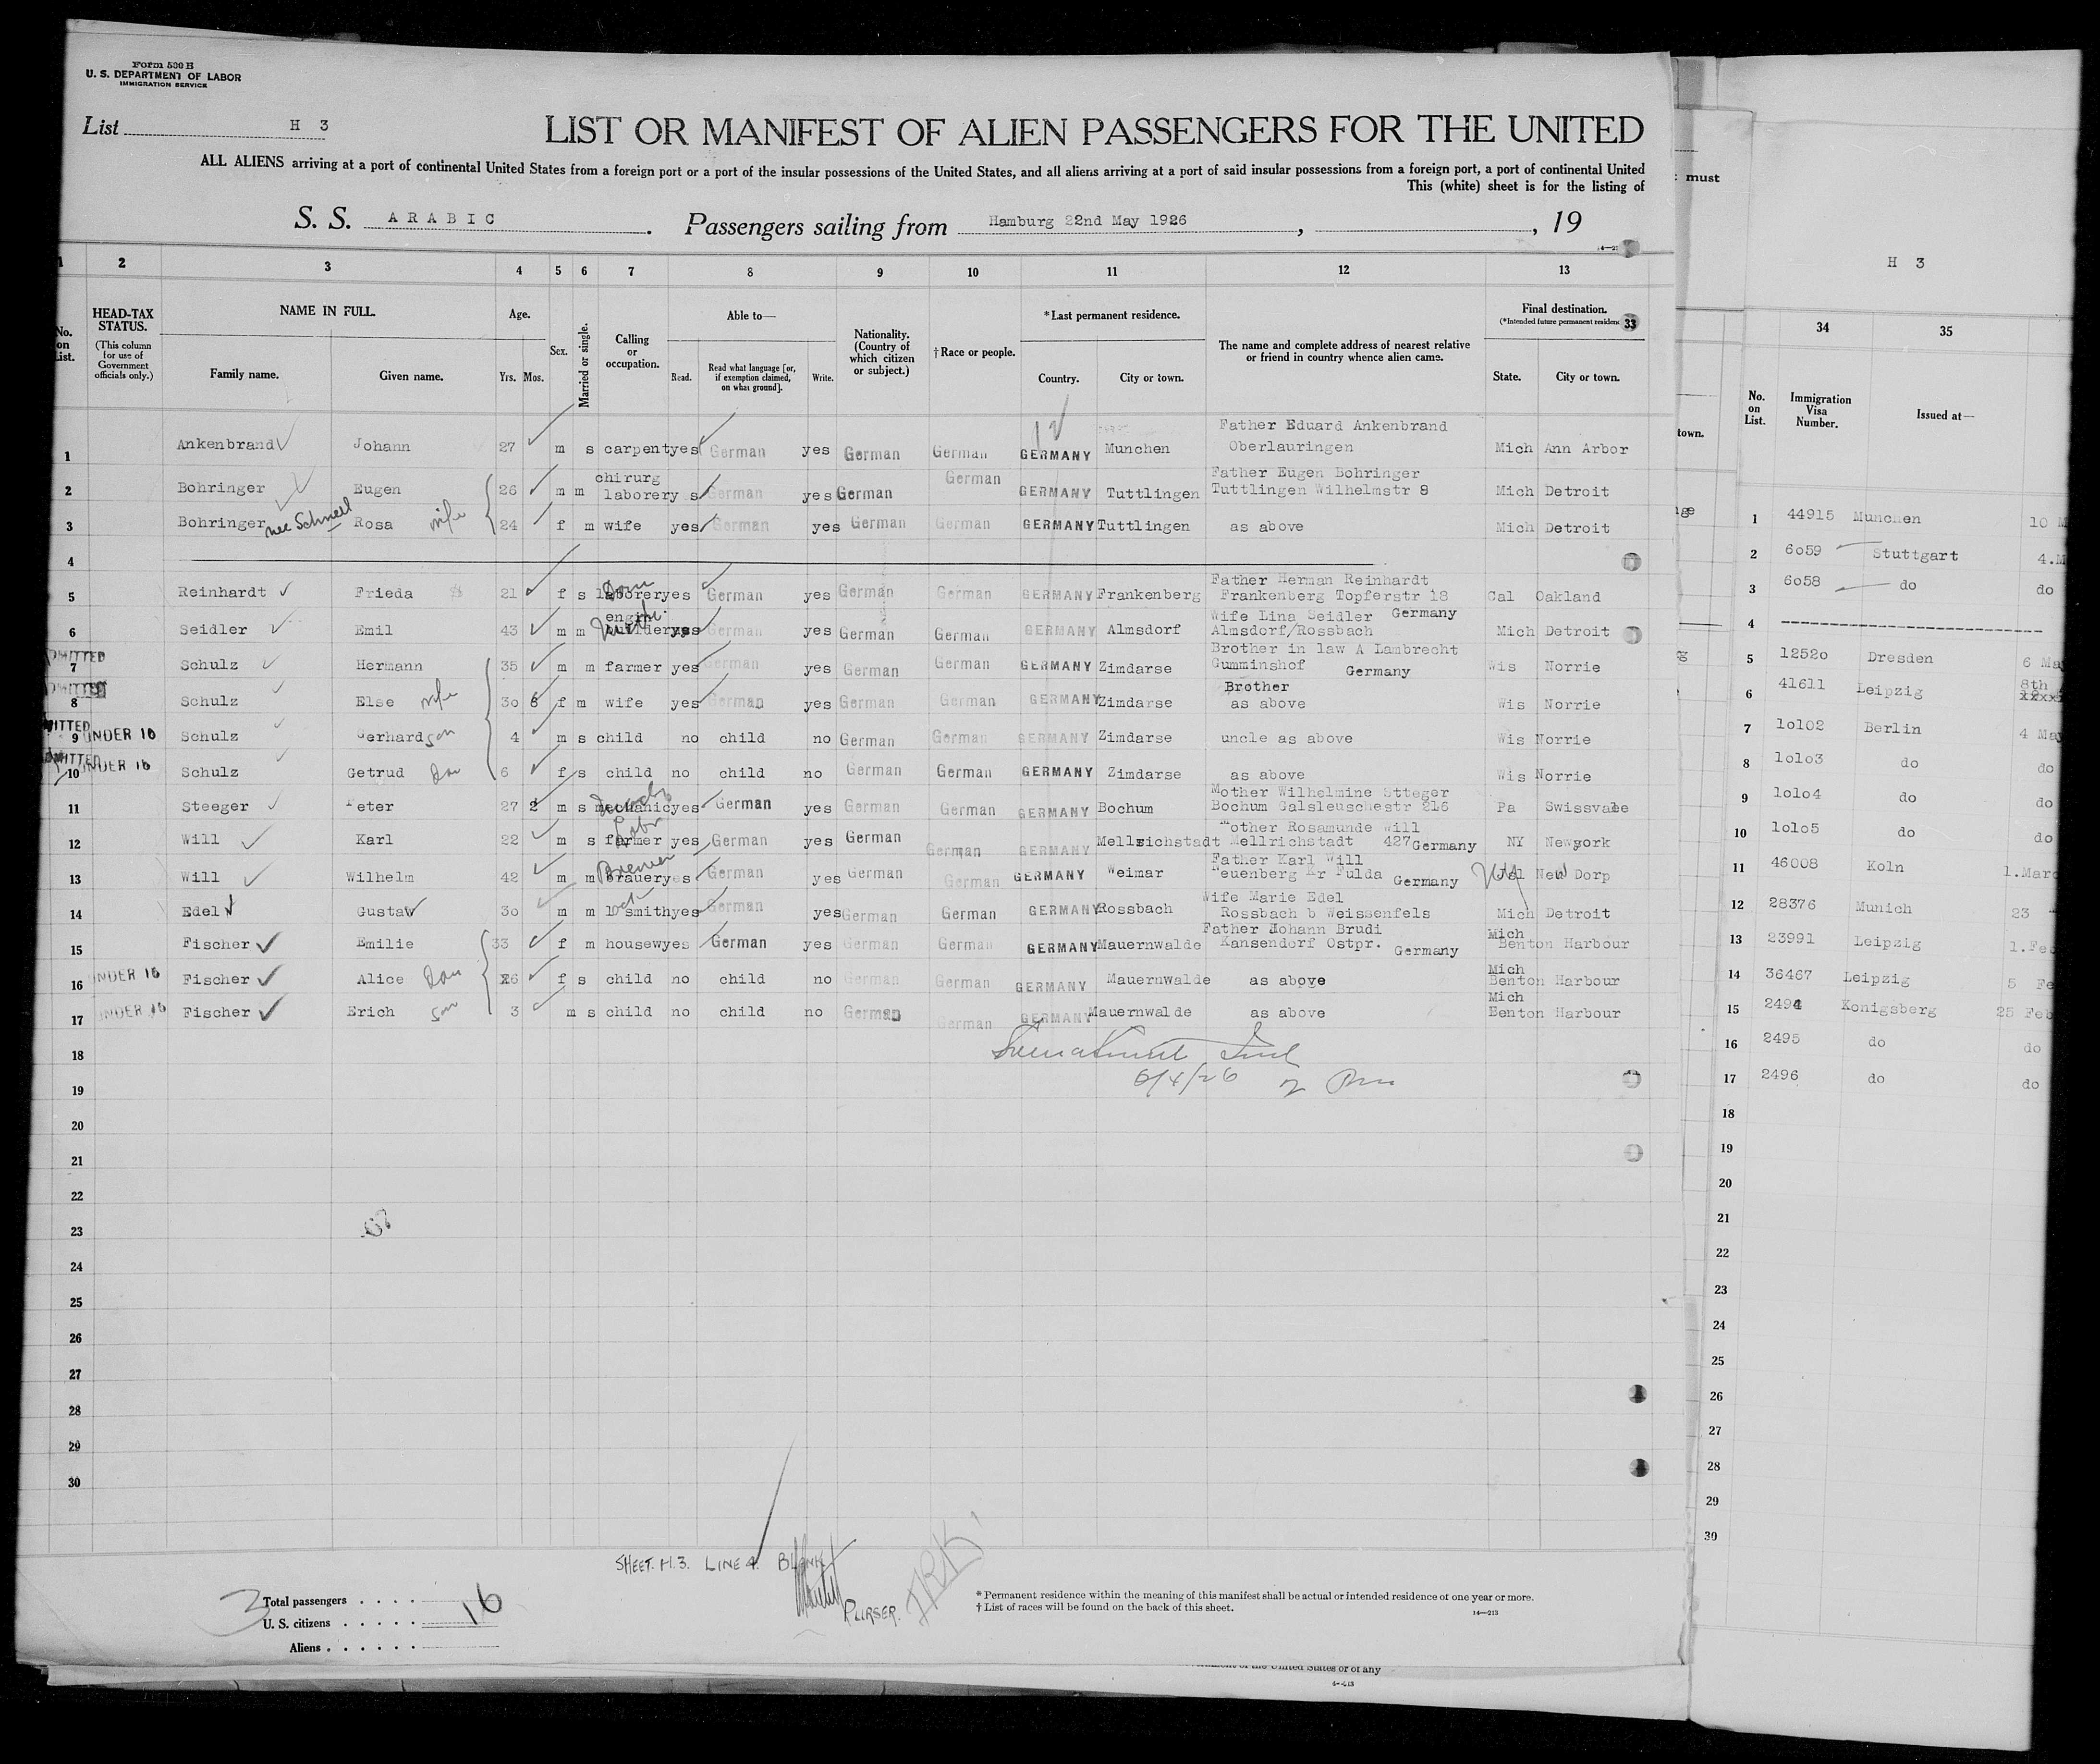 Form 500 B
U. S. DEPARTMENT OF LABOR
IMMIGRATION SERVICE
List H 3
LIST OR MANIFEST OF ALIEN PASSENGERS FOR THE UNITED
ALL ALIENS arriving at a port of continental United States from a foreign port or a port of the insular possessions of the United States, and all aliens arriving at a port of said insular possessions from a foreign port, a port of continental United
This (white) sheet is for the listing of
S. S. ARABIC. Passengers sailing from Hamburg 22nd May 1926, , 19
1 2 3 4 5 6 7 8 9 10 11 12 13
No. on List.
HEAD-TAX STATUS.
(This column for use of Government officials only.)
NAME IN FULL.
Family name. Given name.
Age.
Yrs. Mos.
Sex.
Married or single.
Calling or occupation.
Able to—
Read. Read what language [or, if exemption claimed, on what ground]. Write.
Nationality. (Country of which citizen or subject.)
†Race or people.
*Last permanent residence.
Country. City or town.
The name and complete address of nearest relative or friend in country whence alien came.
Final destination.
(*Intended future permanent residence 33
State. City or town.
12
Father Eduard Ankenbrand
1 Ankenbrand Johann 27 m s carpent yes German yes German German GERMANY Munchen Oberlauringen Mich Ann Arbor
chirurg German Father Eugen Bohringer
2 Bohringer Eugen 26 m m laborer y s German yes German GERMANY Tuttlingen Tuttlingen Wilhelmstr 8 Mich Detroit
3 Bohringer nee Schnell Rosa wife 24 f m wife yes German yes German German GERMANY Tuttlingen as above Mich Detroit
4
Dom Father Herman Reinhardt
5 Reinhardt Frieda 21 f s laborer yes German yes German German GERMANY Frankenberg Frankenberg Topferstr 18 Cal Oakland
engine Wife Lina Seidler Germany
6 Seidler Emil 43 m m yes German yes German German GERMANY Almsdorf Almsdorf/Rossbach Mich Detroit
MITTED Brother in law A Lambrecht
7 Schulz Hermann 35 m m farmer yes German yes German German GERMANY Zimdarse Gumminshof Germany Wis Norrie
MITTED Brother
8 Schulz Else wife 30 6 f m wife yes German yes German German GERMANY Zimdarse as above Wis Norrie
MITTED
9 UNDER 16 Schulz erhard son 4 m s child no child no German German GERMANY Zimdarse uncle as above Wis Norrie
MITTED
10 UNDER 16 Schulz Getrud Dau 6 f s child no child no German German GERMANY Zimdarse as above Wis Norrie
Mother Wilhelmine Stteger
11 Steeger Peter 27 2 m s mechanic yes German yes German German GERMANY Bochum Bochum Galsleuschestr 216 Pa Swissvale
Labr Mother Rosamunde Will
12 Will Karl 22 m s farmer yes German yes German German GERMANY Mellrichstadt Mellrichstadt 427 Germany NY Newyork
Brewer Father Karl Will
13 Will Wilhelm 42 m m brauer yes German yes German German GERMANY Weimar Neuenberg Kr Fulda Germany New Dorp
Wife Marie Edel
14 Edel Gustav 30 m m smith yes German yes German German GERMANY Rossbach Rossbach b Weissenfels Mich Detroit
Father Johann Brudi Mich
15 Fischer Emilie 33 f m housew yes German yes German German GERMANY Mauernwalde Kansendorf Ostpr. Germany Benton Harbour
Mich
16 UNDER 16 Fischer Alice Dau 6 f s child no child no German German GERMANY Mauernwalde as above Benton Harbour
Mich
17 UNDER 16 Fischer Erich son 3 m s child no child no German German GERMANY Mauernwalde as above Benton Harbour
18
6/4/26
19
20
21
22
23
24
25
26
27
28
29
30
SHEET. H.3. LINE 4. BLANK
PURSER.
3
Total passengers
16
U. S. citizens
Aliens
* Permanent residence within the meaning of this manifest shall be actual or intended residence of one year or more.
† List of races will be found on the back of this sheet.
14—213
United States or of any
must
town.
H 3
34 35
No. on List. Immigration Visa Number. Issued at—
1 44915 Munchen 10 M
2 6059 Stuttgart 4.M
3 6058 do do
4
5 12520 Dresden 6 Ma
8th
6 41611 Leipzig
7 10102 Berlin 4 May
8 10103 do do
9 10104 do do
10 10105 do do
11 46008 Koln 1.Marc
12 28376 Munich 23
13 23991 Leipzig 1.Feb
14 36467 Leipzig 5 Fe
15 2494 Konigsberg 25 Feb
16 2495 do do
17 2496 do do
18
19
20
21
22
23
24
25
26
27
28
29
30